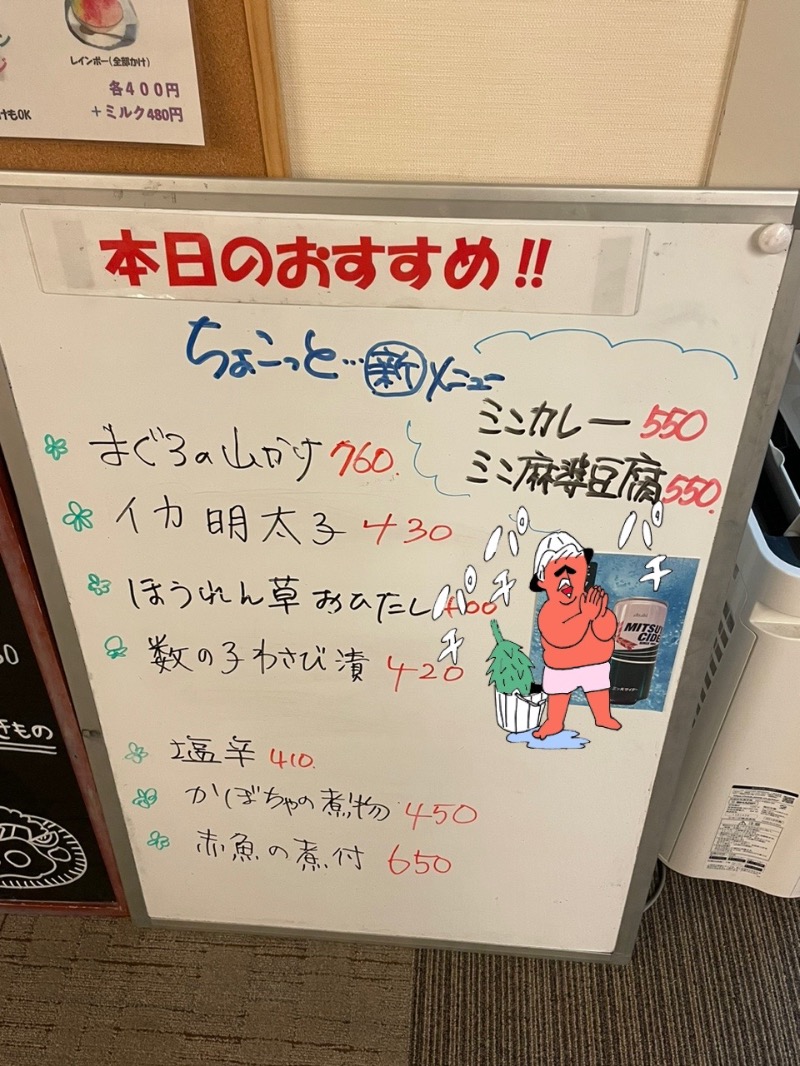 レインボー(全部かけ)
各400円
+ミルク480円
けもOK
本日のおすすめ!!
ちょこっと…新メニュー
ミニカレー 550
ミニ麻婆豆腐 550.
まぐろの山かけ 760.
イカ明太子 430
ほうれん草おひたし
数の子わさび漬 420
塩辛 410.
かぼちゃの煮物 450
赤魚の煮付 650
パチパチ
パチ
Asahi
MITSU
CIDE
きもの